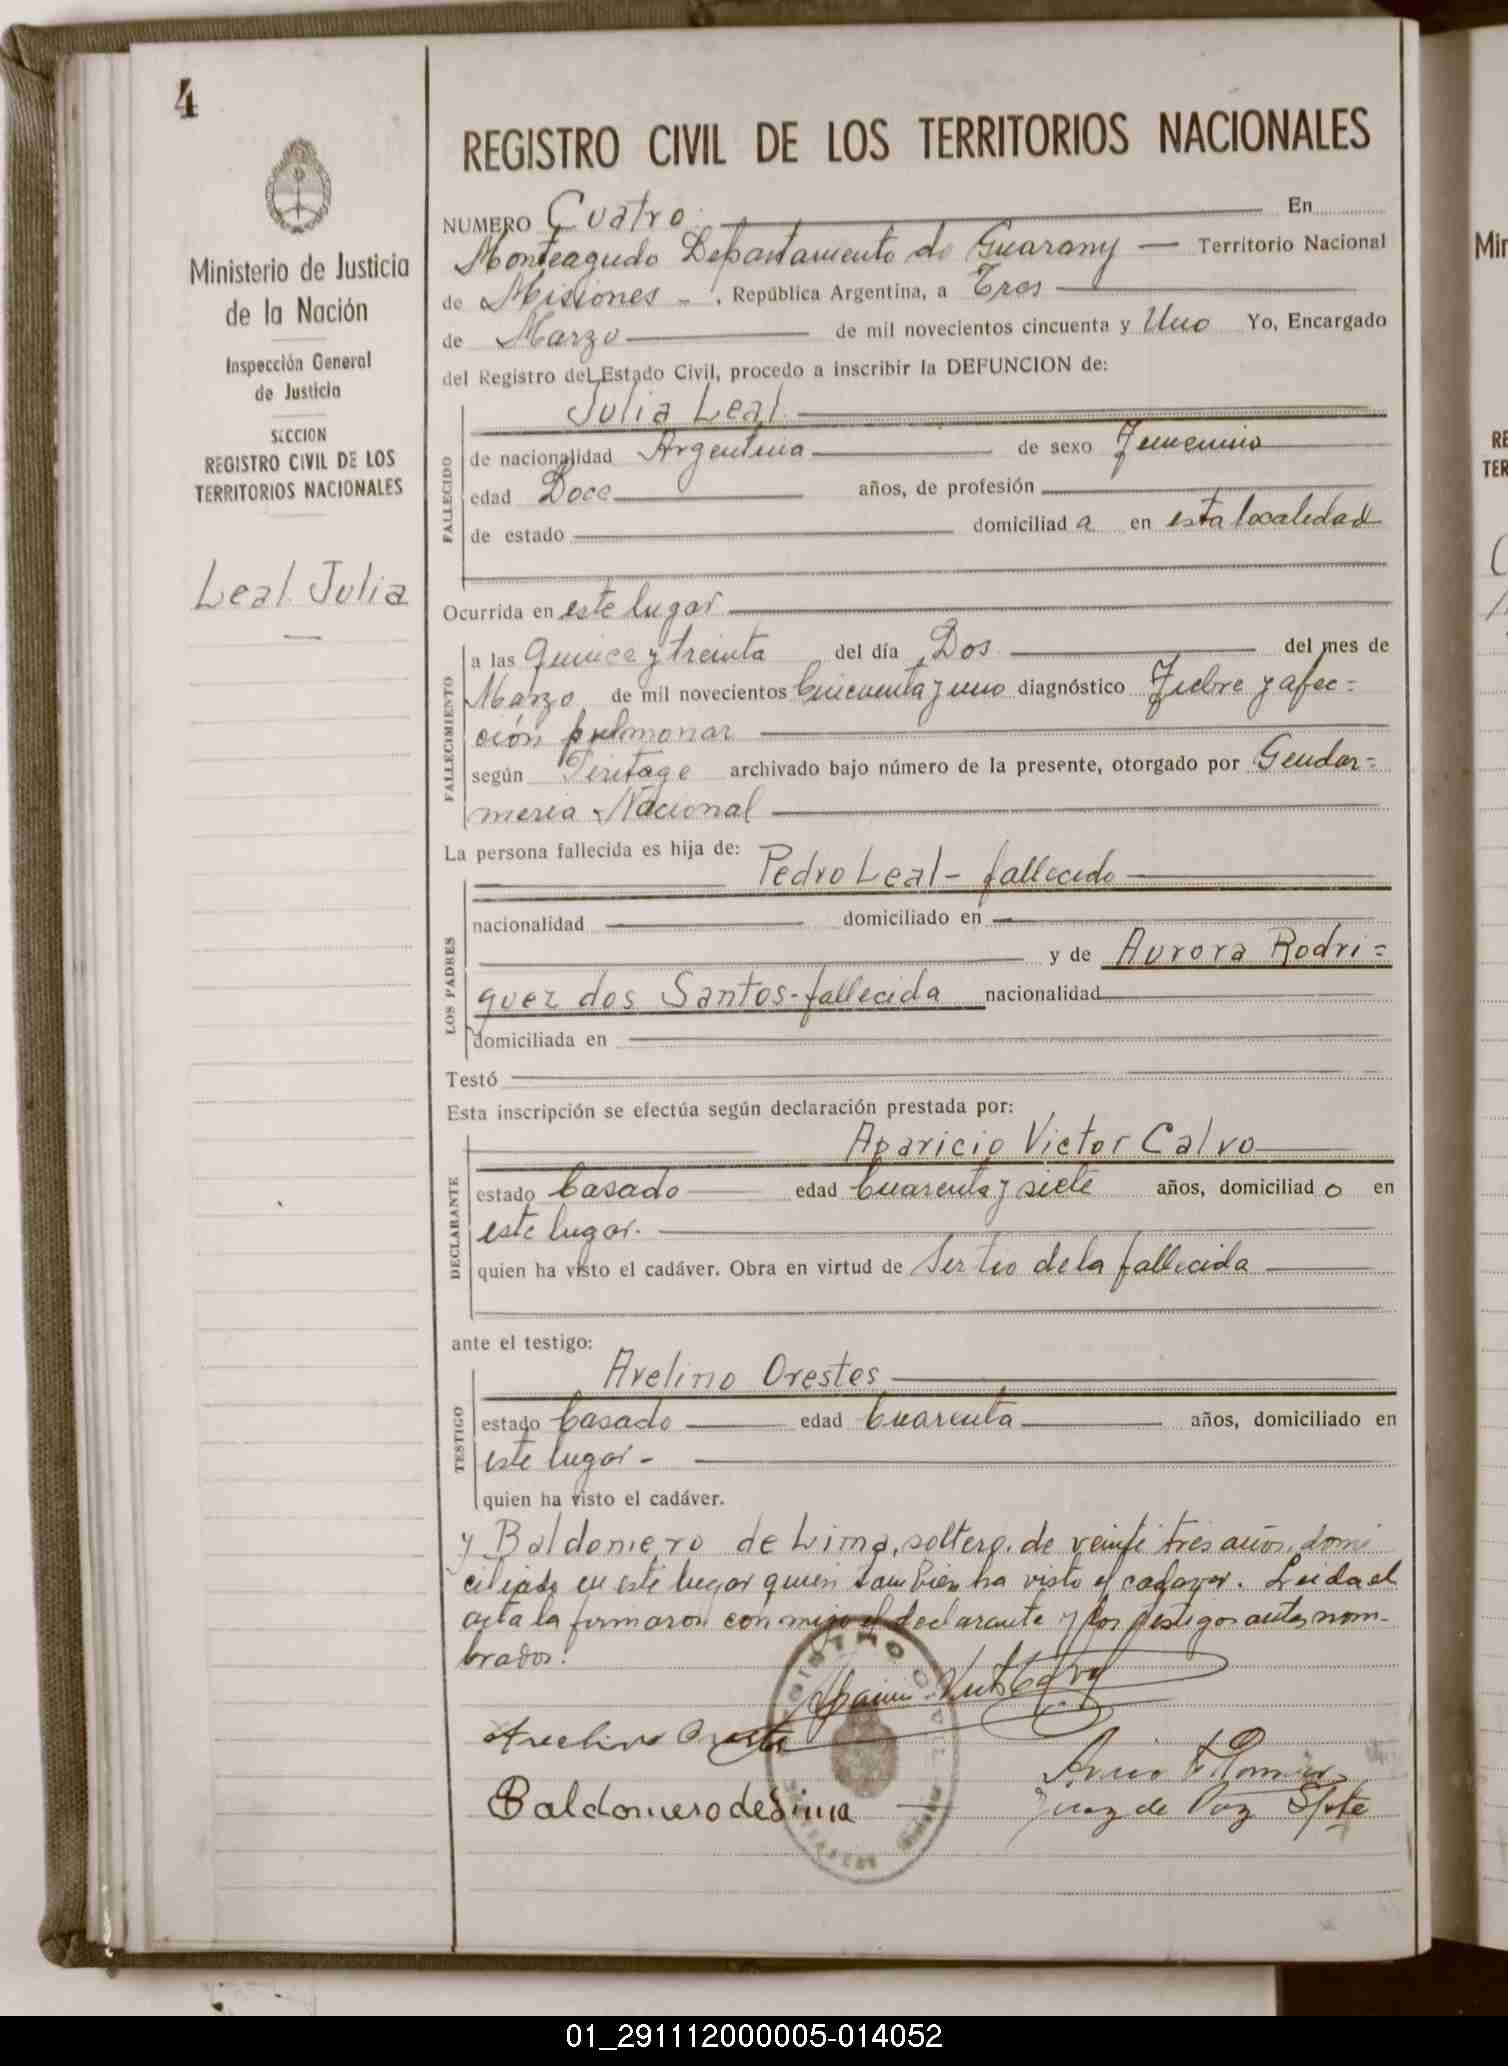 4
Ministerio de Justicia
de la Nación
Inspección General
de Justicia
SECCION
REGISTRO CIVIL DE LOS
TERRITORIOS NACIONALES
Leal Julia
REGISTRO CIVIL DE LOS TERRITORIOS NACIONALES
NUMERO Cuatro. En
Monteagudo Departamento de Guarany Territorio Nacional
de Misiones - , República Argentina, a Tres
de Marzo de mil novecientos cincuenta y Uno Yo, Encargado
del Registro del Estado Civil, procedo a inscribir la DEFUNCION de:
Julia Leal.
FALLECIDO
de nacionalidad Argentina de sexo Femenino
edad Doce años, de profesión
de estado domiciliad a en esta localidad
Ocurrida en este lugar
FALLECIMIENTO
a las Quince y treinta del día Dos del mes de
Marzo de mil novecientos Cincuenta y uno diagnóstico Fiebre y afec=
ción pulmonar
según archivado bajo número de la presente, otorgado por Gendar=
meria Nacional
La persona fallecida es hija de:
Pedro Leal - fallecido
LOS PADRES
nacionalidad domiciliado en
y de Aurora Rodri=
guez dos Santos - fallecida nacionalidad
domiciliada en
Testó
Esta inscripción se efectúa según declaración prestada por:
Aparicio Victor Calvo
DECLARANTE
estado Casado edad Cuarenta y siete años, domiciliad o en
este lugar.
quien ha visto el cadáver. Obra en virtud de Ser tio de la fallecida
ante el testigo:
Avelino Orestes
TESTIGO
estado Casado edad Cuarenta años, domiciliado en
este lugar -
quien ha visto el cadáver.
y Baldomero de Lima, soltero, de veinti tres años, domi
ciliado en este lugar quien tambien ha visto el cadaver. Leida el
acta la firmaron conmigo el declarante y los testigos antes nom-
brados.
Avelino Orestes
Baldomero de Lima
Juez de Paz Splte
01_291112000005-014052